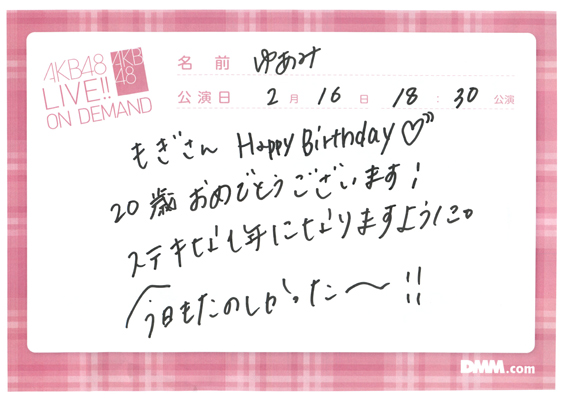 AKB48
LIVE!!
ON DEMAND
AKB
48
名前 ゆあみ
公演日 2月16日 18:30公演
もぎさん Happy Birthday♡
20歳おめでとうございます!
ステキな1年になりますように。
今日もたのしかった〜!!
DMM.com